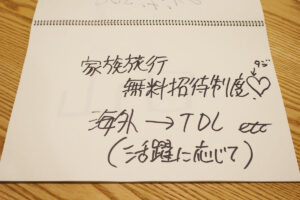 家族旅行
無料招待制度♡
海外→TDL etc
(活躍に応じて)